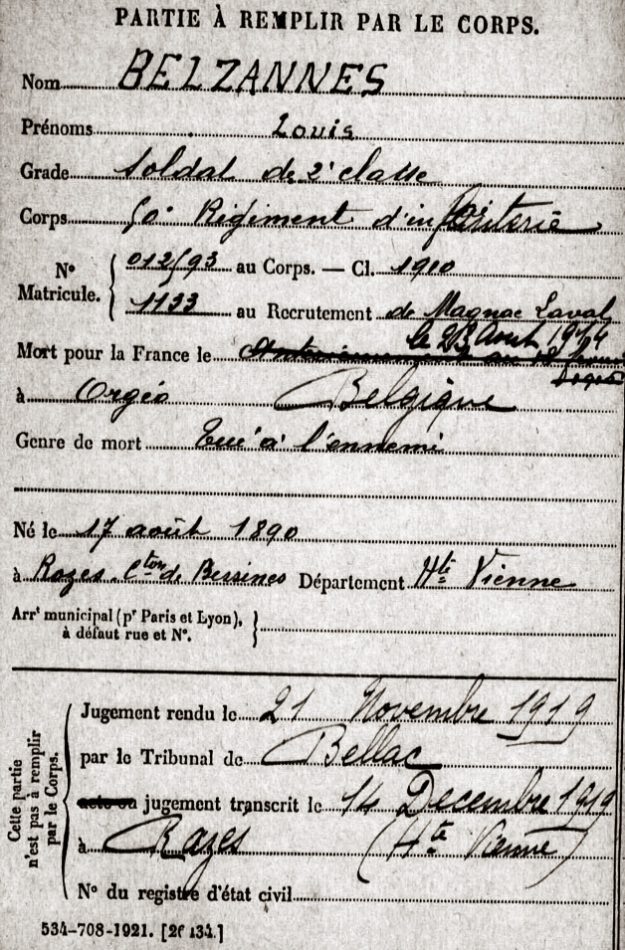 PARTIE À REMPLIR PAR LE CORPS.
Nom BELZANNES
Prénoms Louis
Grade Soldat de 2e classe
Corps 50e Régiment d'infanterie
No Matricule. 012593 au Corps. — Cl. 1910
1133 au Recrutement de Magnac Laval
le 23 Aout 1914
Mort pour la France le
à Orgéo Belgique
Genre de mort Tué à l'ennemi
Né le 17 août 1890
à Razes Cton de Bessines Département Hte Vienne
Arrt municipal (pr Paris et Lyon),
à défaut rue et No.
Cette partie
n'est pas à remplir
par le Corps.
Jugement rendu le 21 Novembre 1919
par le Tribunal de Bellac
acte ou jugement transcrit le 14 Decembre 1919
à Razès (Hte Vienne)
No du registre d'état civil
534-708-1921. [26134.]